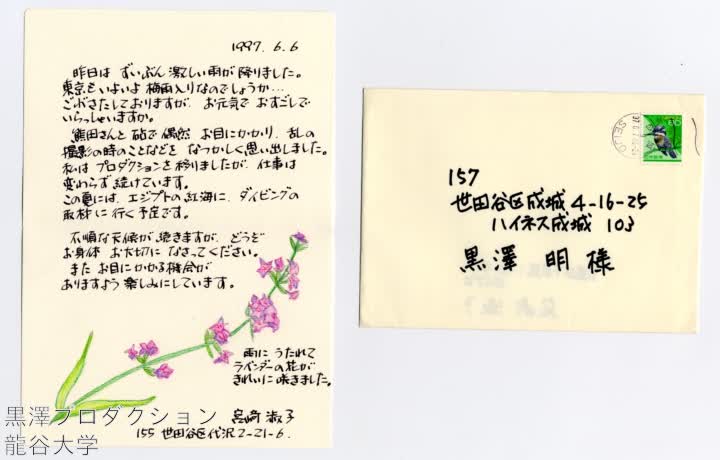 1997.6.6
昨日は ずいぶん激しい雨が降りました。
東京もいよいよ梅雨入りなのでしょうか…
ごぶさたしておりますが、お元気で おすごしで
いらっしゃいますか。
熊田さんと 砧で 偶然 お目にかかり、乱の
撮影の時のことなどを なつかしく思い出しました。
私は プロダクションを移りましたが、仕事は
変わらず 続けています。
この夏には、エジプトの紅海に、ダイビングの
取材に行く予定です。
不順な天候が、続きますが、どうぞ
お身体 お大切に なさってください。
また お目にかかる機会が
ありますよう 楽しみにしています。
雨に うたれて
ラベンダーの花が
きれいに咲きました。
宮崎 淑子
155 世田谷区代沢2-21-6.
黒澤プロダクション
龍谷大学
SEIJO
157
世田谷区成城 4-16-25
ハイネス成城 103
黒澤 明 様